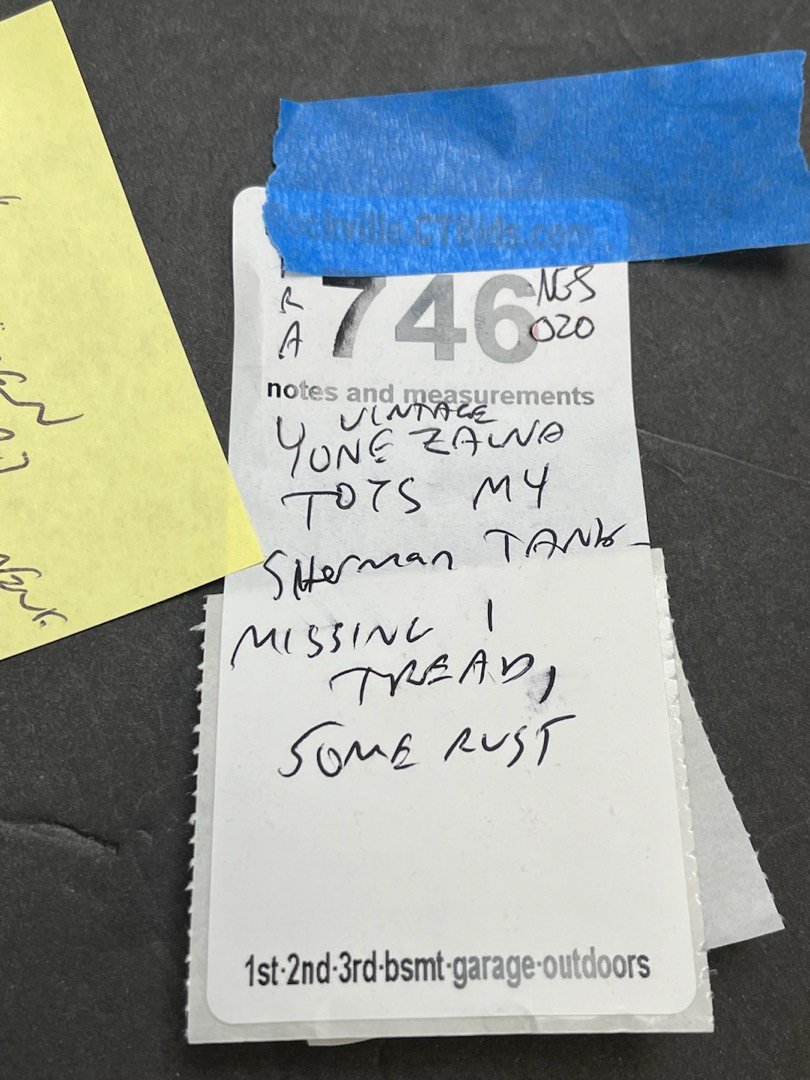 Rockville.CTBids.com
R
A
746
NGS
020
notes and measurements
VINTAGE
YONEZAWA
TOYS M4
SHerman TANK
MISSING 1
TREAD,
SOME RUST
1st·2nd·3rd·bsmt·garage·outdoors